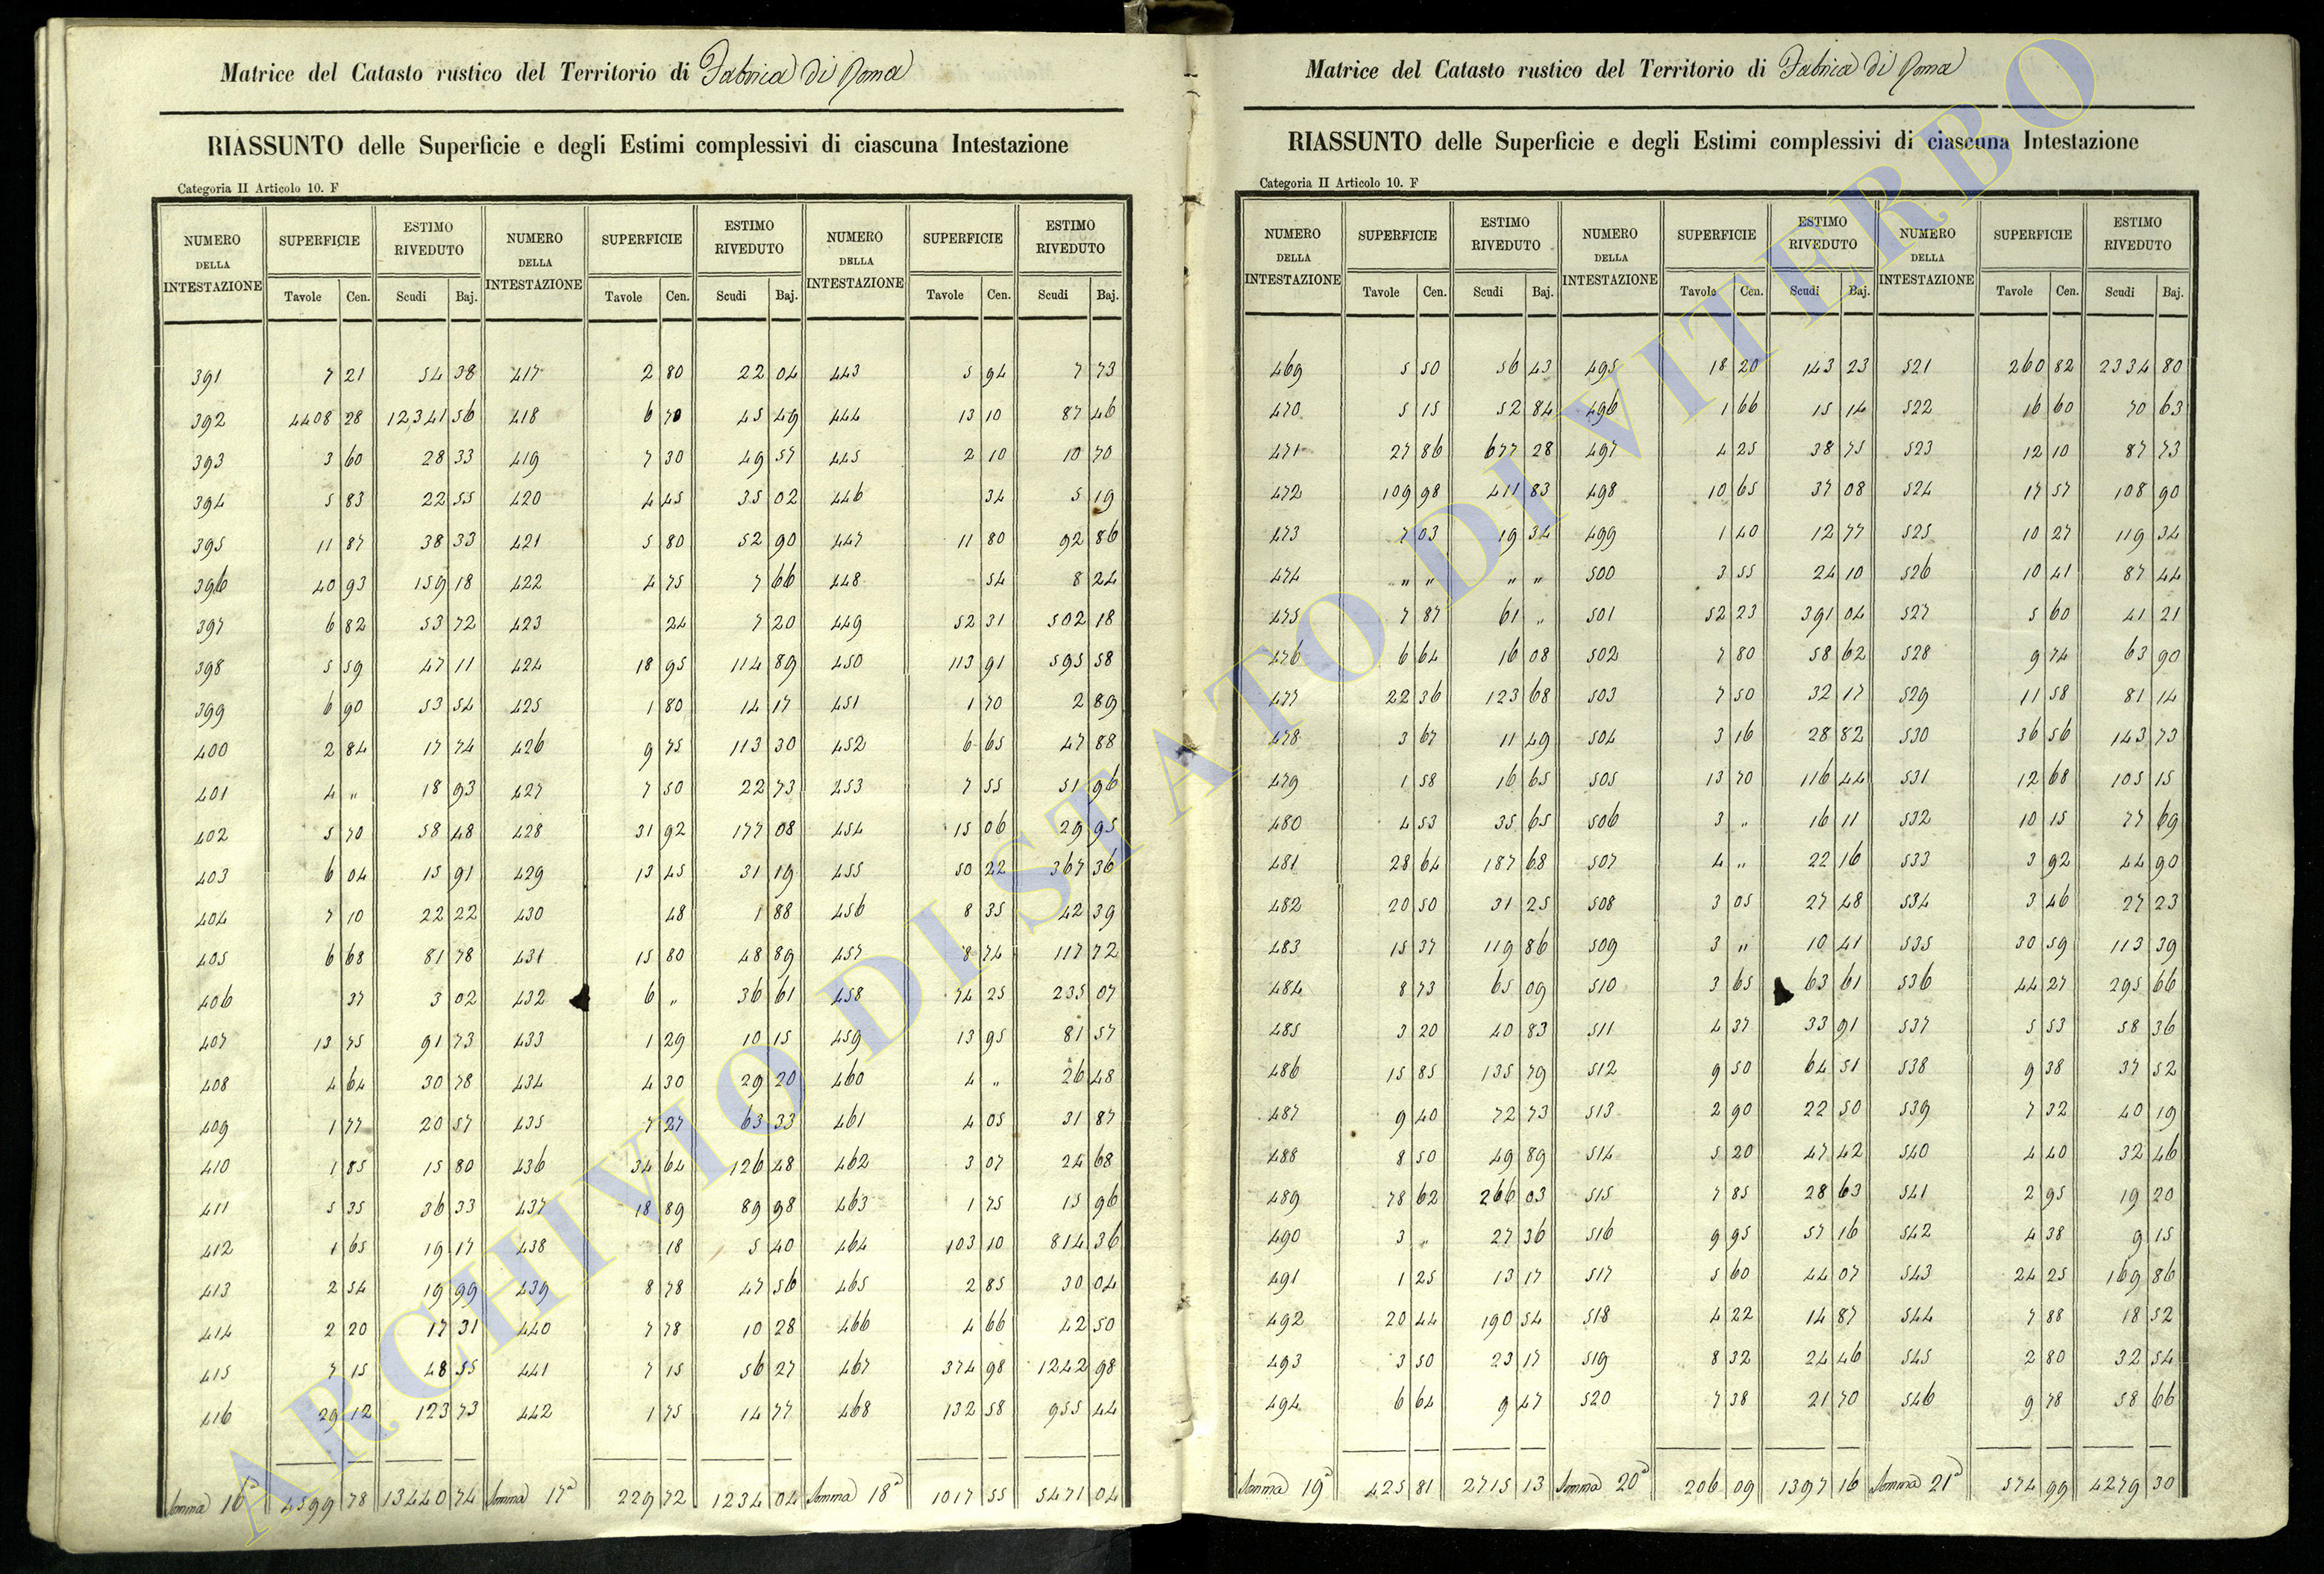 Matrice del Catasto rustico del Territorio di Fabrica di Roma
RIASSUNTO delle Superficie e degli Estimi complessivi di ciascuna Intestazione
Categoria II Articolo 10. F
NUMERO DELLA INTESTAZIONE SUPERFICIE ESTIMO RIVEDUTO NUMERO DELLA INTESTAZIONE SUPERFICIE ESTIMO RIVEDUTO NUMERO DELLA INTESTAZIONE SUPERFICIE ESTIMO RIVEDUTO
Tavole Cen. Scudi Baj. Tavole Cen. Scudi Baj. Tavole Cen. Scudi Baj.
391 7 21 54 38 417 2 80 22 04 443 5 94 7 73
392 4408 28 12341 56 418 6 70 45 49 444 13 10 87 46
393 3 60 28 33 419 7 30 49 57 445 2 10 10 70
394 5 83 22 55 420 4 45 35 02 446 34 5 19
395 11 87 38 33 421 5 80 52 90 447 11 80 92 86
396 40 93 159 18 422 4 75 7 66 448 54 8 24
397 6 82 53 72 423 24 7 20 449 52 31 502 18
398 5 59 47 11 424 18 95 114 89 450 113 91 595 58
399 6 90 53 54 425 1 80 14 17 451 1 70 2 89
400 2 84 17 74 426 9 75 113 30 452 6 65 47 88
401 4 " 18 93 427 7 50 22 73 453 7 55 51 96
402 5 70 58 48 428 31 92 177 08 454 15 06 29 95
403 6 04 15 91 429 13 45 31 19 455 50 22 367 36
404 7 10 22 22 430 48 1 88 456 8 35 42 39
405 6 68 81 78 431 15 80 48 89 457 8 74 117 72
406 37 3 02 432 6 " 36 61 458 74 25 235 07
407 13 75 91 73 433 1 29 10 15 459 13 95 81 57
408 4 64 30 78 434 4 30 29 20 460 4 " 26 48
409 1 77 20 57 435 7 27 63 33 461 4 05 31 87
410 1 85 15 80 436 34 64 126 48 462 3 07 24 68
411 5 35 36 33 437 18 89 89 98 463 1 75 15 96
412 1 65 19 17 438 18 5 40 464 103 10 814 36
413 2 54 19 99 439 8 78 47 56 465 2 85 30 04
414 2 20 17 31 440 7 78 10 28 466 4 66 42 50
415 7 15 48 55 441 7 15 56 27 467 374 98 1242 98
416 29 12 123 73 442 1 75 14 77 468 132 58 955 44
Somma 16ª 4599 78 13440 74 Somma 17ª 229 72 1234 04 Somma 18ª 1017 55 5471 04
Matrice del Catasto rustico del Territorio di Fabrica di Roma
RIASSUNTO delle Superficie e degli Estimi complessivi di ciascuna Intestazione
Categoria II Articolo 10. F
NUMERO DELLA INTESTAZIONE SUPERFICIE ESTIMO RIVEDUTO NUMERO DELLA INTESTAZIONE SUPERFICIE ESTIMO RIVEDUTO NUMERO DELLA INTESTAZIONE SUPERFICIE ESTIMO RIVEDUTO
Tavole Cen. Scudi Baj. Tavole Cen. Scudi Baj. Tavole Cen. Scudi Baj.
469 5 50 56 43 495 18 20 143 23 521 260 82 2334 80
470 5 15 52 84 496 1 66 15 14 522 16 60 70 63
471 27 86 677 28 497 4 25 38 75 523 12 10 87 73
472 109 98 411 83 498 10 65 37 08 524 17 57 108 90
473 7 03 19 34 499 1 40 12 77 525 10 27 119 34
474 " " " " 500 3 55 24 10 526 10 41 87 44
475 7 87 61 " 501 52 23 391 04 527 5 60 41 21
476 6 64 16 08 502 7 80 58 62 528 9 74 63 90
477 22 36 123 68 503 7 50 32 17 529 11 58 81 14
478 3 67 11 49 504 3 16 28 82 530 36 56 143 73
479 1 58 16 65 505 13 70 116 44 531 12 68 105 15
480 4 53 35 65 506 3 " 16 11 532 10 15 77 69
481 28 64 187 68 507 4 " 22 16 533 3 92 44 90
482 20 50 31 25 508 3 05 27 48 534 3 46 27 23
483 15 37 119 86 509 3 " 10 41 535 30 59 113 39
484 8 73 65 09 510 3 65 63 61 536 44 27 295 66
485 3 20 40 83 511 4 37 33 91 537 5 53 58 36
486 15 85 135 79 512 9 50 64 51 538 9 38 37 52
487 9 40 72 73 513 2 90 22 50 539 7 32 40 19
488 8 50 49 89 514 5 20 47 42 540 4 40 32 46
489 78 62 266 03 515 7 85 28 63 541 2 95 19 20
490 3 " 27 36 516 9 95 57 16 542 4 38 9 15
491 1 25 13 17 517 5 60 44 07 543 24 25 169 86
492 20 44 190 54 518 4 22 14 87 544 7 88 18 52
493 3 50 23 17 519 8 32 24 46 545 2 80 32 54
494 6 64 9 47 520 7 38 21 70 546 9 78 58 66
Somma 19ª 425 81 2715 13 Somma 20ª 206 09 1397 16 Somma 21ª 574 99 4279 30
ARCHIVIO DI STATO DI VITERBO